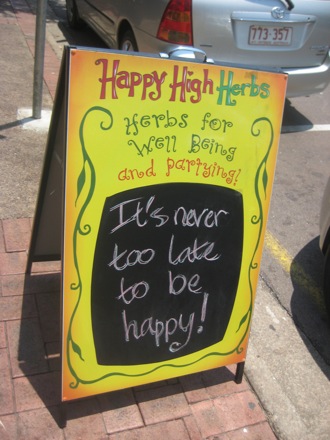 773·356
Happy High Herbs
Herbs for
Well Being
and partying!
It's never
too late
to be
happy!